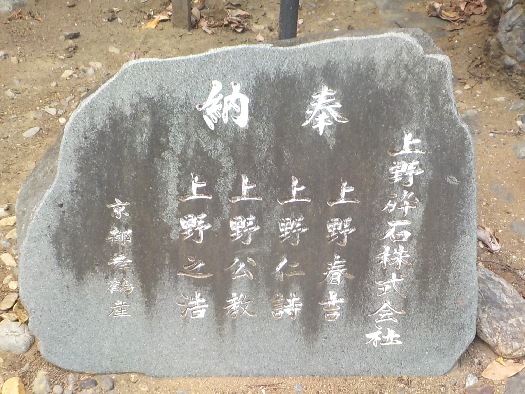 奉納
上野砕石株式会社
上野春吉
上野仁詩
上野公教
上野之浩
京都舞鶴産